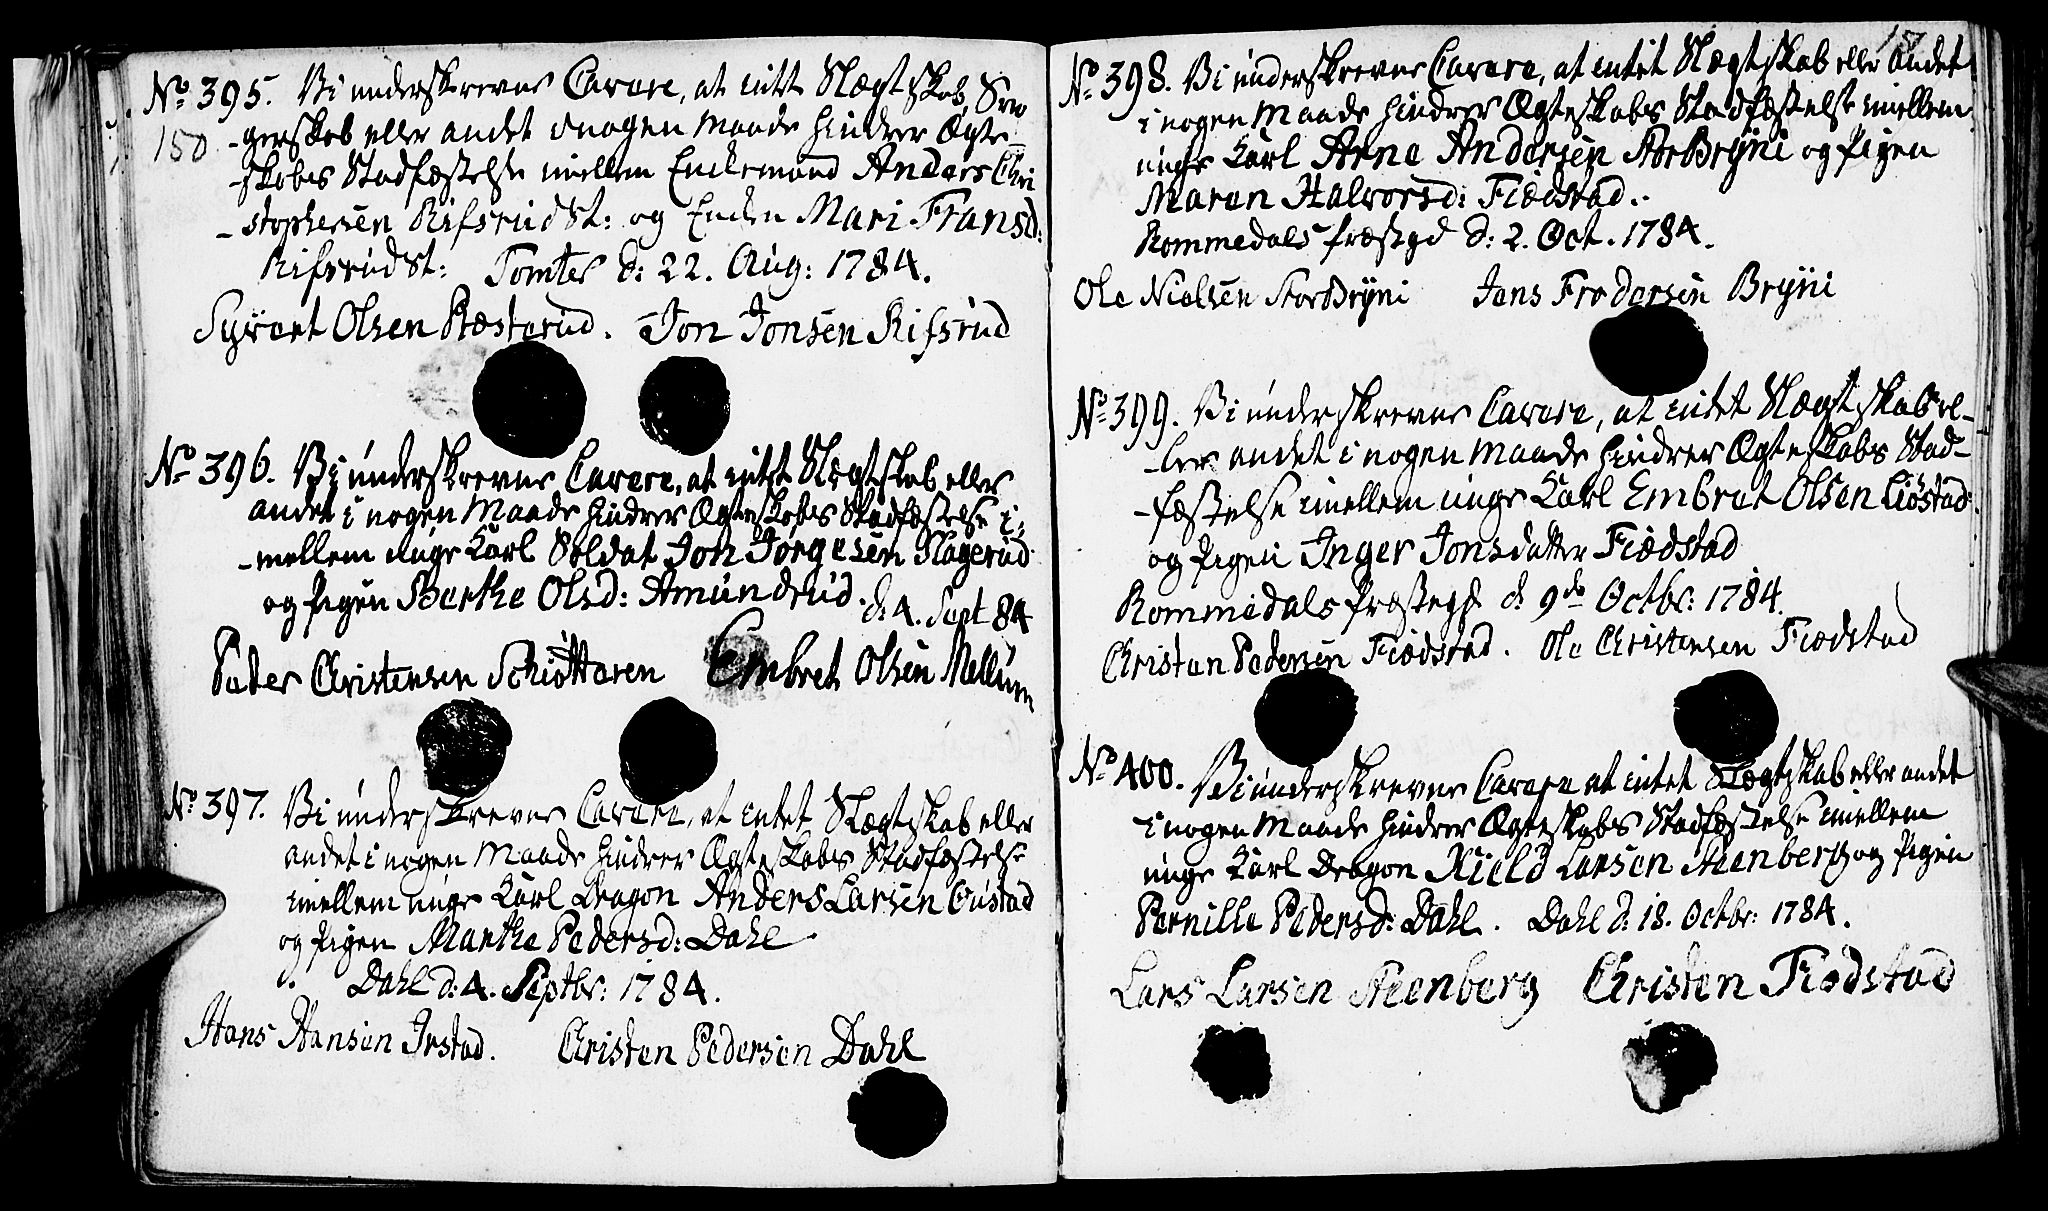 150
No 395. Vi underskrevne Cavere, at intet Slægtskab, Svo-
-gerskab eller andet i nogen Maade hindrer Ægte-
-skabs Stadfæstelse imellem Enkemand Anders Chri
-stophersen Rifsrudst: og Enken Mari Fransd:
Rifsrudst: Tomter d: 22. Aug: 1784.
Syvert Olsen Ræsterud. Jon Jonsen Rifsrud
No 396. Vi underskrevne Cavere, at intet Slægtskab eller
andet i nogen Maade hindrer Ægteskabs Stadfæstelse i-
-mellem unge Karl Soldat Jon Jørgesen Hagerud
og Pigen Berthe Olsd: Amundrud. d. 4. Sept 84
Peder Christensen Schiøttaren Embret Olsen Mellum
No 397. Vi underskrevne Cavere, at intet Slægtskab eller
andet i nogen Maade hindrer Ægteskabs Stadfæstelse
imellem unge Karl Dragon Anders Larsen Gustad
og Pigen Marthe Pedersd: Dahl
Dahl d: 4. Septbr: 1784.
Hans Hansen Irstad. Christen Pedersen Dahl
151
No 398. Vi underskrevne Cavere, at intet Slægtskab eller andet
i nogen Maade hindrer Ægteskabs Stadfæstelse imellem
unge Karl Arne Andersen StorBryni og Pigen
Maren Halvorsd: Fiædstad.
Rommedals Præstegd d: 2. Oct. 1784.
Ole Nielsen StorBryni Jens Fredersen Bryni
No 399. Vi underskrevne Cavere, at intet Slægtskab el-
-ler andet i nogen Maade hindrer Ægteskabs Stad-
-fæstelse imellem unge Karl Embret Olsen Liøstad
og Pigen Inger Jonsdatter Fiædstad
Rommedals Præstegd d. 9de Octbr: 1784.
Christen Pedersen Fiædstad. Ole Christensen Fiædstad
No 400. Vi underskrevne Cavere at intet Slægtskab eller andet
i nogen Maade hindrer Ægteskabs Stadfæstelse imellem
unge Karl Dragon Kield Larsen Steenberg og Pigen
Pernille Pedersd: Dahl. Dahl d: 18. Octbr: 1784.
Lars Larsen Steenberg Christen Fiødstad